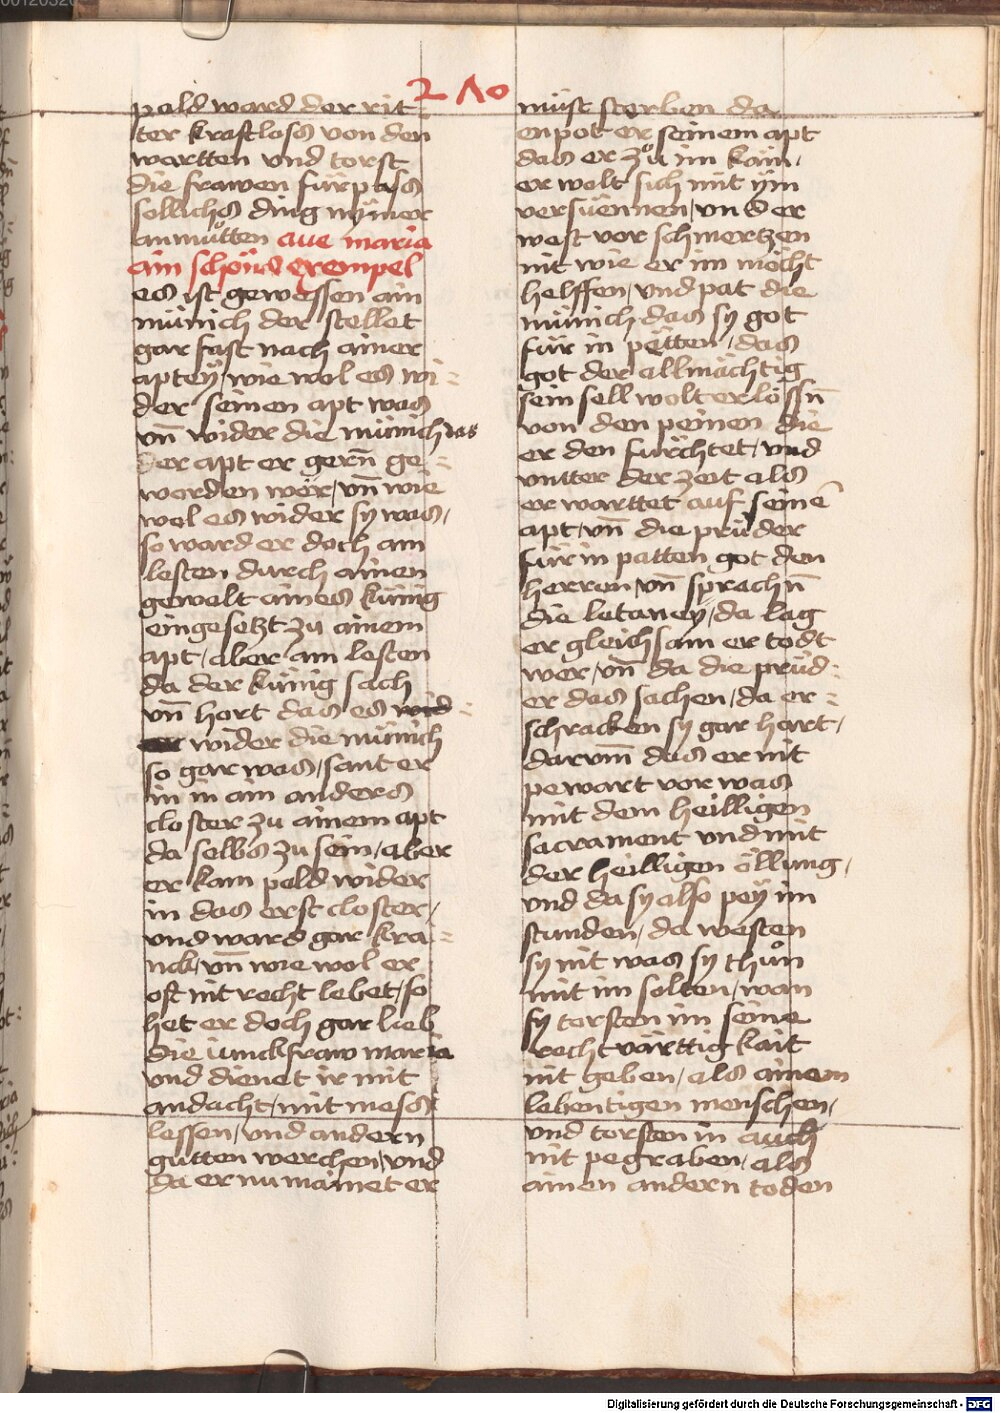 210
pald ward der rit-
ter kraftloss von den
wartten vnd torst
die frawen fürpass
sollichs ding nÿmer
anmůtten aue maria
ain schöns exempel
es ist gewessen ain
münich der stellet
gar fast nach ainer
apteÿ, wie wol es wi-
der seinen apt was
vn̄ wider die münich das
der apt er gern̄ ge-
worden wer, vn̄ wie
wol es wider sy was,
so ward er doch am
lesten durch ainen
gewalt aines künig
eingesetzt zu ainem
apt, aber am lesten
da der künig sach
vn̄ hort das es wid
wider die münich
so gar was, sant er
in in ain anders
closter zu ainem apt
da selbs zu sein, aber
er kam pald wider
in das erst closter,
vnd ward gar kra-
nck, vn̄ wie wol er
oft nit recht lebet, so
het er doch gar lieb
die iunckfraw maria
vnd dienet ir mit
andacht, mit mess
lessen, vnd andern
gutten werchen, vnd
da er nu mainet er
müst sterben da
enpot er seinem apt
das er zů im käm,
er wolt sich mit ÿm
versüennen, vnd er
west vor schmertzen
nit wie er im möcht
helffen, vnd pat die
münich das sy got
für in pëtten, das
got der allmächtig
sein sell wolt erlössn̄
von den peinen die
er den fürchtet, vnd
vntter der zeit als
er warttet auf seinē
apt, vn̄ die prüder
für in patten got den
herren, vn̄ sprachn̄
die letaneÿ, da lag
er gleichsam er todt
wer, vn̄ da die prüd-
er das sachen, da er-
schracken sy gar hart,
darvm̄ das er nit
pewart vor was
mit dem heilligen
sacrament vnd mit
der heilligen öllung,
vnd da sy also peÿ im
stunden, da westen
sy nit was sy thůn
mit im solten, wan
sy torsten im seine
recht värttigkait
nit geben, als ainem
lebentigen menschen,
vnd torsten in auch
nit pegraben, als
ainen andern toden
Digitalisierung gefördert durch die Deutsche Forschungsgemeinschaft - DFG